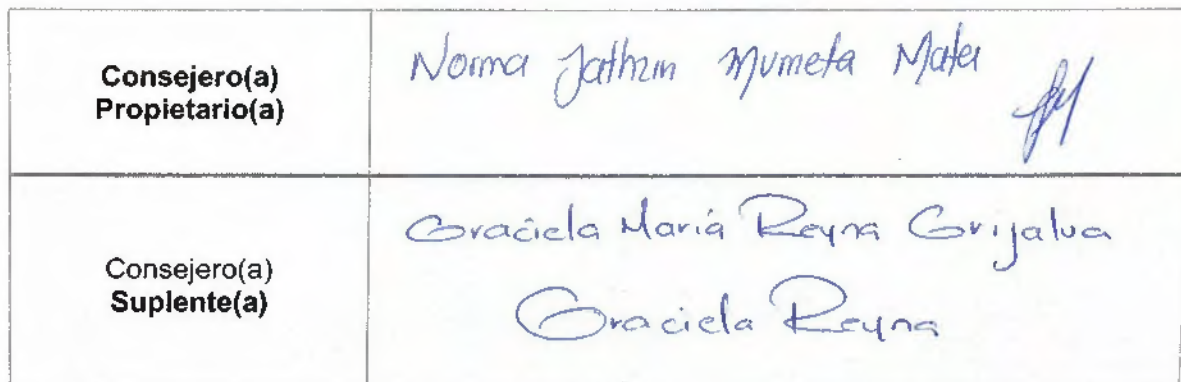 Consejero(a)
Propietario(a)
Norma Jathzin Mumeta Mata
Consejero(a)
Suplente(a)
Graciela María Reyna Grijalva
Graciela Reyna